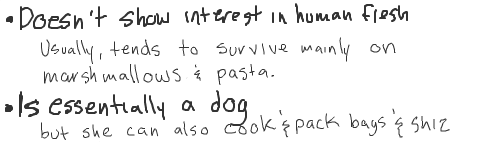 • Doesn't show interest in human flesh
Usually, tends to survive mainly on
marshmallows & pasta.
• Is essentially a dog
but she can also cook & pack bags & shiz